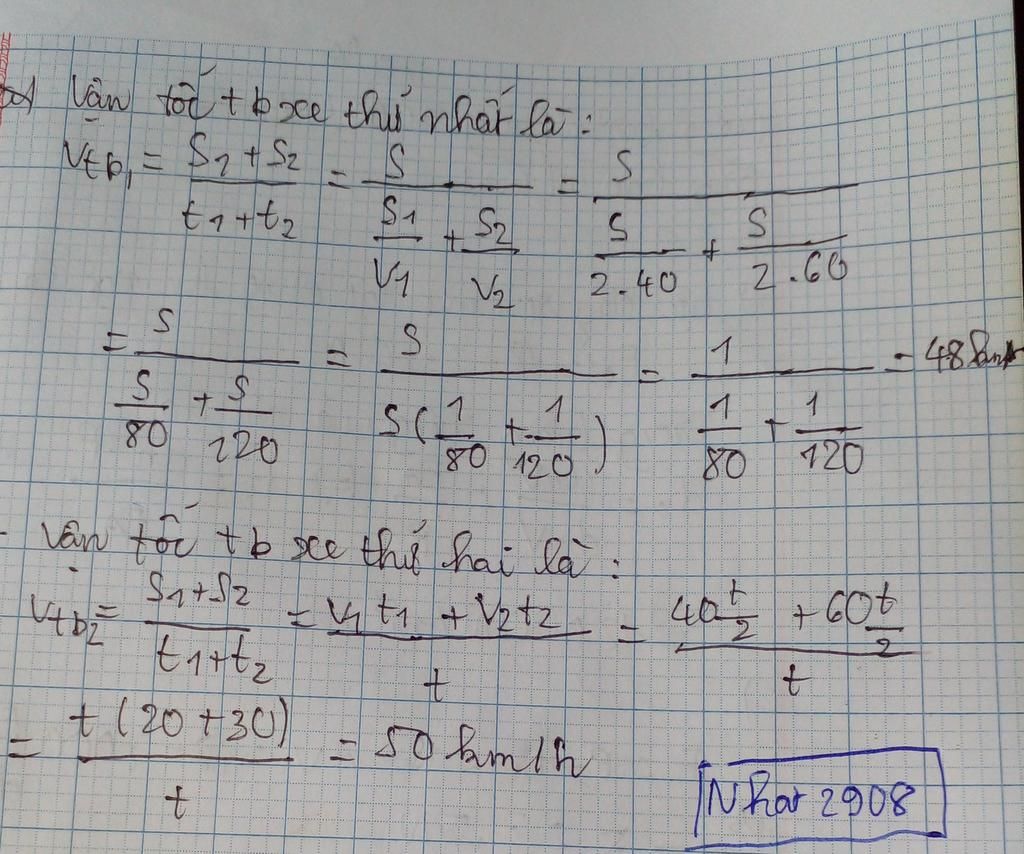 a) Vận tốc tb xe thứ nhất là:
Vtb₁ = (S₁ + S₂)/(t₁ + t₂) = S/(S₁/V₁ + S₂/V₂) = S/(S/2.40 + S/2.60)
= S/(S/80 + S/120) = S/(S(1/80 + 1/120)) = 1/(1/80 + 1/120) = 48km/h
- Vận tốc tb xe thứ hai là:
Vtb₂ = (S₁+S₂)/(t₁+t₂) = (V₁t₁ + V₂t₂)/t = (40t/2 + 60t/2)/t
= t(20 + 30)/t = 50km/h
Nhat 2908